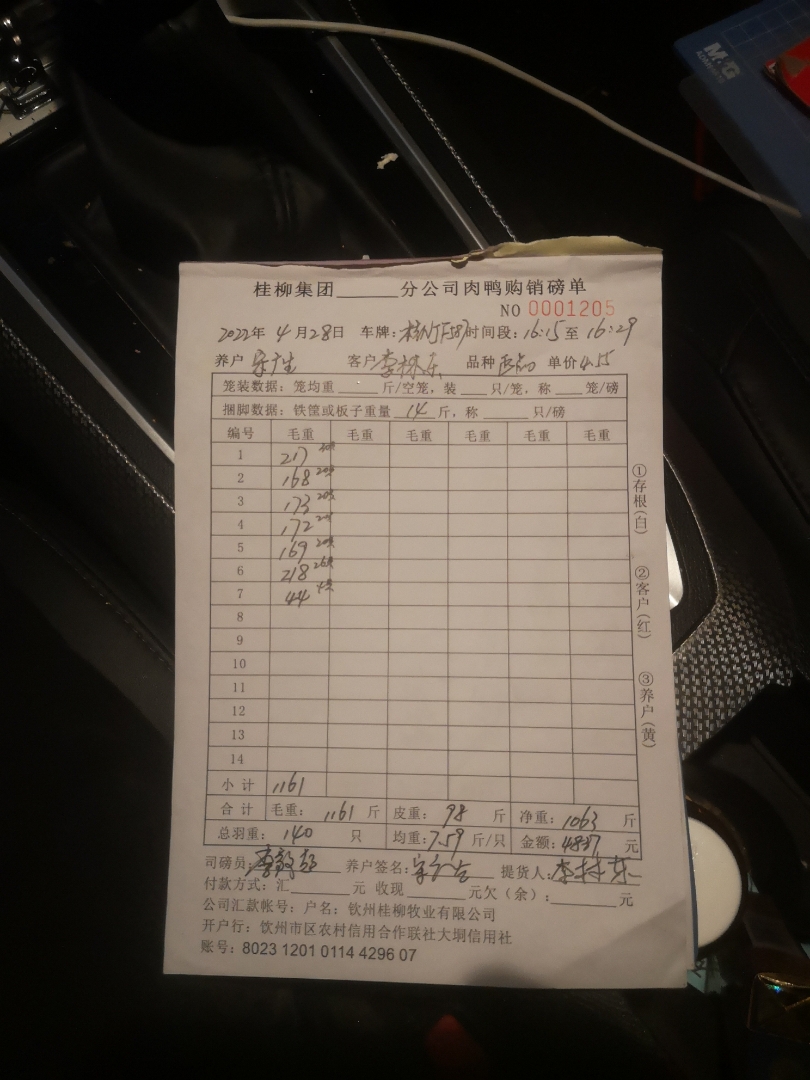 M&G
桂柳集团______分公司肉鸭购销磅单
NO 0001205
2022年 4月28日 车牌: 时间段: 16:15至 16:29
养户 客户 品种 单价4.55
笼装数据: 笼均重____斤/空笼, 装__只/笼, 称__笼/磅
捆脚数据: 铁筐或板子重量 14 斤, 称____只/磅
编号 毛重 毛重 毛重 毛重 毛重 毛重
1 217
2 168
3 173
4 172
5 169
6 218
7 44
8
9
10
11
12
13
14
小计 1161
合计 毛重: 1161 斤 皮重: 98 斤 净重: 1063 斤
总羽重: 140 只 均重: 7.59 斤/只 金额: 4837 元
司磅员: 养户签名: 提货人:
付款方式: 汇______元 收现______元欠(余):______元
公司汇款帐号: 户名: 钦州桂柳牧业有限公司
开户行: 钦州市区农村信用合作联社大垌信用社
账号: 8023 1201 0114 4296 07
①存根(白)
②客户(红)
③养户(黄)